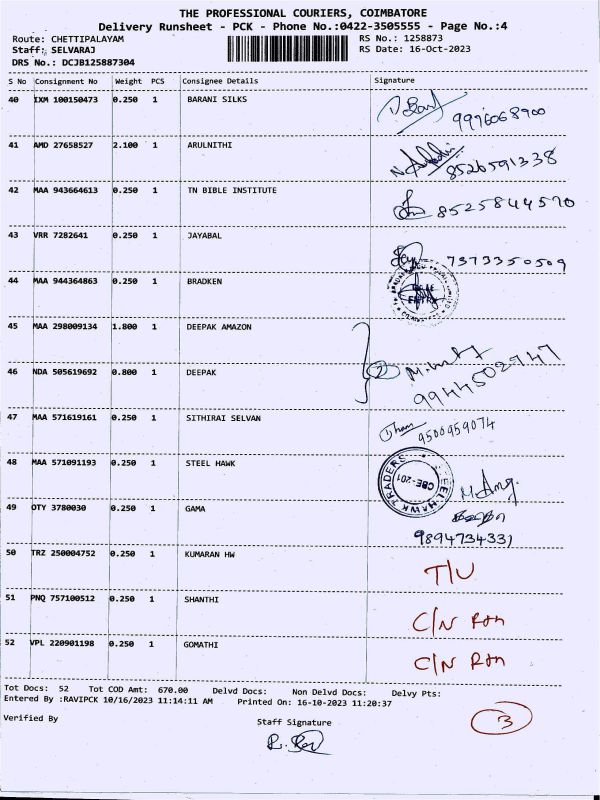 THE PROFESSIONAL COURIERS, COIMBATORE
Delivery Runsheet - PCK - Phone No.:0422-3505555 - Page No.:4
Route: CHETTIPALAYAM RS No.: 1258873
Staff: SELVARAJ RS Date: 16-Oct-2023
DRS No.: DCJB125887304
S No Consignment No Weight PCS Consignee Details Signature
40 IXM 100150473 0.250 1 BARANI SILKS 9996068900
41 AMD 27658527 2.100 1 ARULNITHI 8526591338
42 MAA 943664613 0.250 1 TN BIBLE INSTITUTE 8525844570
43 VRR 7282641 0.250 1 JAYABAL 7373350509
44 MAA 944364863 0.250 1 BRADKEN
45 MAA 298009134 1.800 1 DEEPAK AMAZON
46 NDA 505619692 0.800 1 DEEPAK 2 9944502747
47 MAA 571619161 0.250 1 SITHIRAI SELVAN 9500959074
48 MAA 571091193 0.250 1 STEEL HAWK STEEL HAWK TRADERS CBE-201
49 OTY 3780030 0.250 1 GAMA 9894734331
50 TRZ 250004752 0.250 1 KUMARAN HW T/U
51 PNQ 757100512 0.250 1 SHANTHI C/N Rtn
52 VPL 220901198 0.250 1 GOMATHI C/N Rtn
Tot Docs: 52 Tot COD Amt: 670.00 Delvd Docs: Non Delvd Docs: Delvy Pts:
Entered By :RAVIPCK 10/16/2023 11:14:11 AM Printed On: 16-10-2023 11:20:37
3
Verified By Staff Signature